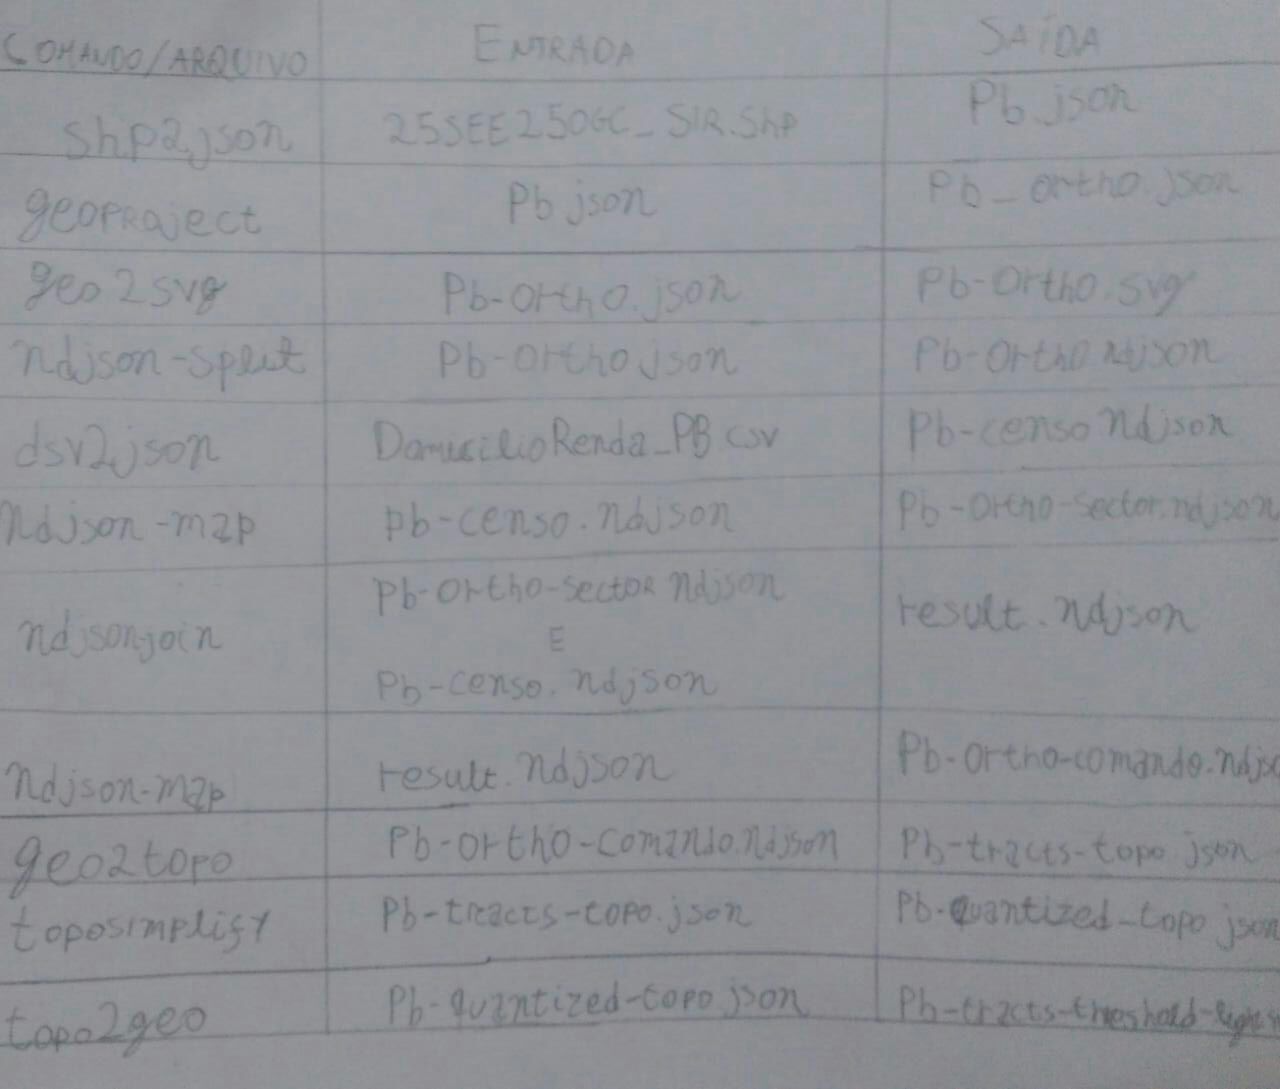 COMANDO/ARQUIVO ENTRADA SAÍDA
shp2json 25SEE250GC_SIR.shp Pb.json
geoproject Pb json Pb_ortho.json
geo2svg Pb-ortho.json Pb-ortho.svg
ndjson-split Pb-ortho json Pb-ortho.ndjson
dsv2json DomicilioRenda_PB csv Pb-censo ndjson
ndjson-map pb-censo.ndjson Pb-ortho-sector.ndjson
ndjsonjoin Pb-ortho-sector ndjson
E
Pb-censo.ndjson result.ndjson
ndjson-map result.ndjson Pb-ortho-comando.ndjso
geo2topo Pb-ortho-comando.ndjson Pb-tracts-topo json
toposimplify Pb-tracts-topo.json Pb-quantized-topo json
topo2geo Pb-quantized-topo json Pb-tracts-threshold-